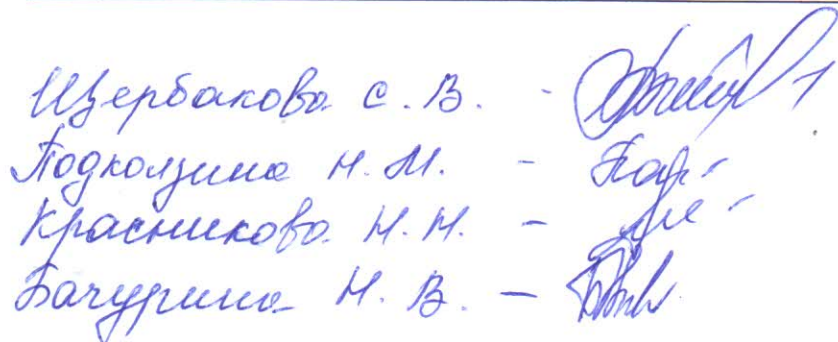 Щербакова С. В. -
Подколзина Н. М. -
Красникова Н. Н. -
Бачурина Н. В. -